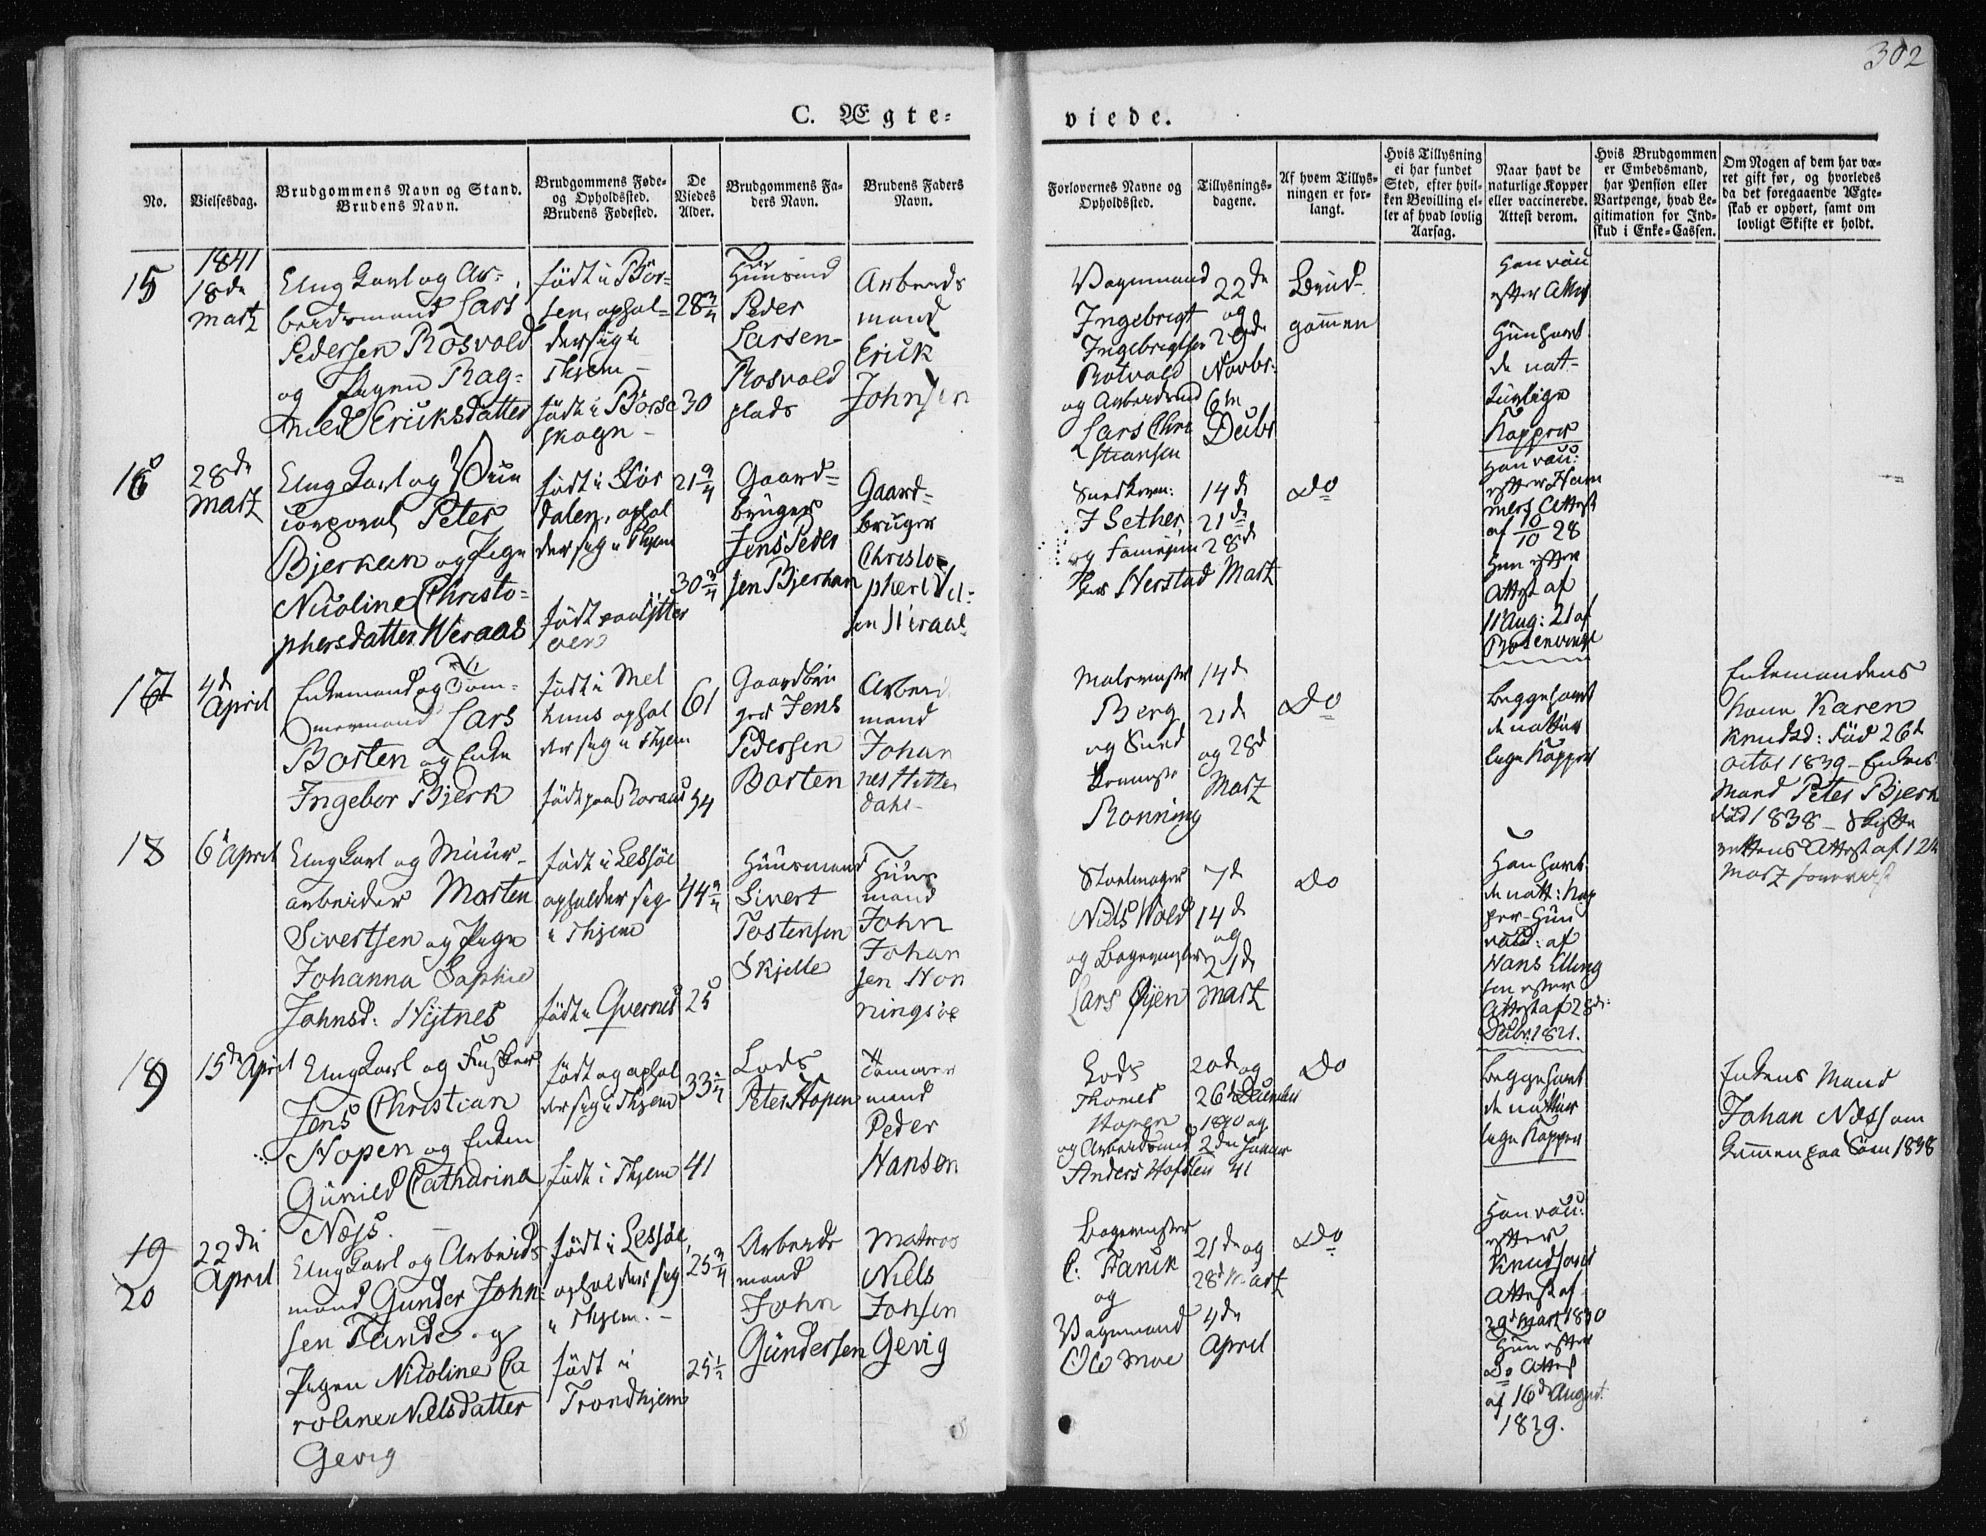 302
C. Ægte-
viede.
No.
Vielsesdag.
Brudgommens Navn og Stand.
Brudens Navn.
Brudgommens Føde-
og Opholdssted.
Brudens Fødested.
De
Viedes
Alder.
Brudgommens Fa-
ders Navn.
Brudens Faders
Navn.
Forlovernes Navne og
Opholdssted.
Tillysnings-
dagene.
Af hvem Tillys-
ningen er for-
langt.
Hvis Tillysning
ei har fundet
Sted, efter hvil-
ken Bevilling el-
ler af hvad lovlig
Aarsag.
Naar havt de
naturlige Kopper
eller vaccinerede.
Attest derom.
Hvis Brudgommen
er Embedsmand,
har Pension eller
Vartpenge, hvad Le-
gitimation for Ind-
skud i Enke-Cassen.
Om Nogen af dem har væ-
ret gift før, og hvorledes
da det foregaaende Ægte-
skab er ophørt, samt om
lovligt Skifte er holdt.
15
1841
18de
Martz
Ung Karl og Ar-
beidsmand Lars
Pedersen Rosvold
og Pigen Rag-
nild Ericksdatter
født i Bør-
sen, ophol-
der sig i
Thjem
født i Børse
skogn
28 3/4
30
Huusmd
Peder
Larsen
Rosvold
plads
Arbeids
mand
Erick
Johnsen
Vognmand
Ingebrigt
Ingebrigtsen
Rotvold
og Arbeidsmd
Lars Chri
stiansen
22de
og
29de
Novbr.
6te
Decbr
Brud-
gommen
Han vacc
efter Attest
Hun havt
de nat-
turlige
Kopper
16
28de
Martz
Ung Karl og
corporal Peter
Bjerkan og Pige
Nicoline Christo-
phersdatter Weraas
født i Stør
dalen, ophol
der sig i Thjem
født paa Ytter
øen
21 9/4
30 3/4
Gaard-
bruger
Jens Peder
sen Bjerkan
Gaard-
bruger
Christo-
pher
J Sether
og
Herstad
14de
21de
28de
Martz
Do
Han vacc:
efter Ham
mers Attest
af 10/10 28
Hun efter
Attest af
11 Aug: 21 af
Rosenvinge
17
4de
April
Enkemand og Tøm-
mermand Lars
Borten og Enke
Ingebor Bjerk
født i Mel
huus ophol
der sig i Thjem
født paa Roraas
61
54
Gaardbru
ger Jens
Pedersen
Borten
Arbei
mand
Johan
nes Hitter
dahl
Malermester
Berg
og
Ronning
14de
21de
og 28de
Martz
Do
Begge havt
de nattur
lige Kopper
Enkemandens
Kone Karen
Knudsd: død 26de
Octbr 1839 – Enkens
Mand Peter Bjerk
død 1838 – Skifte
rettens Attest af 12te
Martz forevist
18
6te April
Ung Karl og Muur-
arbeider Morten
Sivertsen og Pige
Johanna Sophie
Johnsd: Hytnes
født i Lessøe
opholder sig
i Thjem
født i Qvernes
44 3/4
25
Huusmand
Sivert
Tostensen
Skjelle
Huus
mand
John
Johan
sen Hon
ningsøe
Stoelmager
Niels Wold
og Bogermester
Lars Øyen
7de
14de
og
21de
Martz
Do
Han havt
de natt: Kop
per – Hun
vacc: af
Hans Elling
sen efter
Attest af 28de
Decbr: 1821.
19
15de April
Ung Karl og Fisker
Jens Christian
Hopen og Enken
Gunild Catharina
Næss.
født og ophol
der sig i Thjem
født i Thjem
33 1/4
41
Lods
Peter Hopen
Tømmer
mand
Peder
Hansen
Lods
Thomas
Hopen
og Arbeidsmd
Anders Hofsten
20de og
26de Decembr
1840 og
2den Januar
41
Do
Begge havt
de nattur
lige Kopper
Enkens Mand
Johan Næss om
kommen paa Søen 1838
19
20
22de
April
Ung Karl og Arbeids
mand Gunder John-
sen Tande og
Pigen Nicoline Ca
roline Nielsdatter
Gevig
født i Lessøe,
opholder sig
i Thjem. –
født i
Trondhjem
25 3/4
25 1/2
Arbeids
mand
John
Gundersen
Matros
Niels
Johsen
Gevig
Bogermester
C. Fanik
og
Vognmand
Ole Moe
21de og
28de Martz
4de
April
Do
Han vacc:
efter
Knudsons
Attest af
29de Martz 1830
Hun efter
Do Attest
af 16de August
1829.